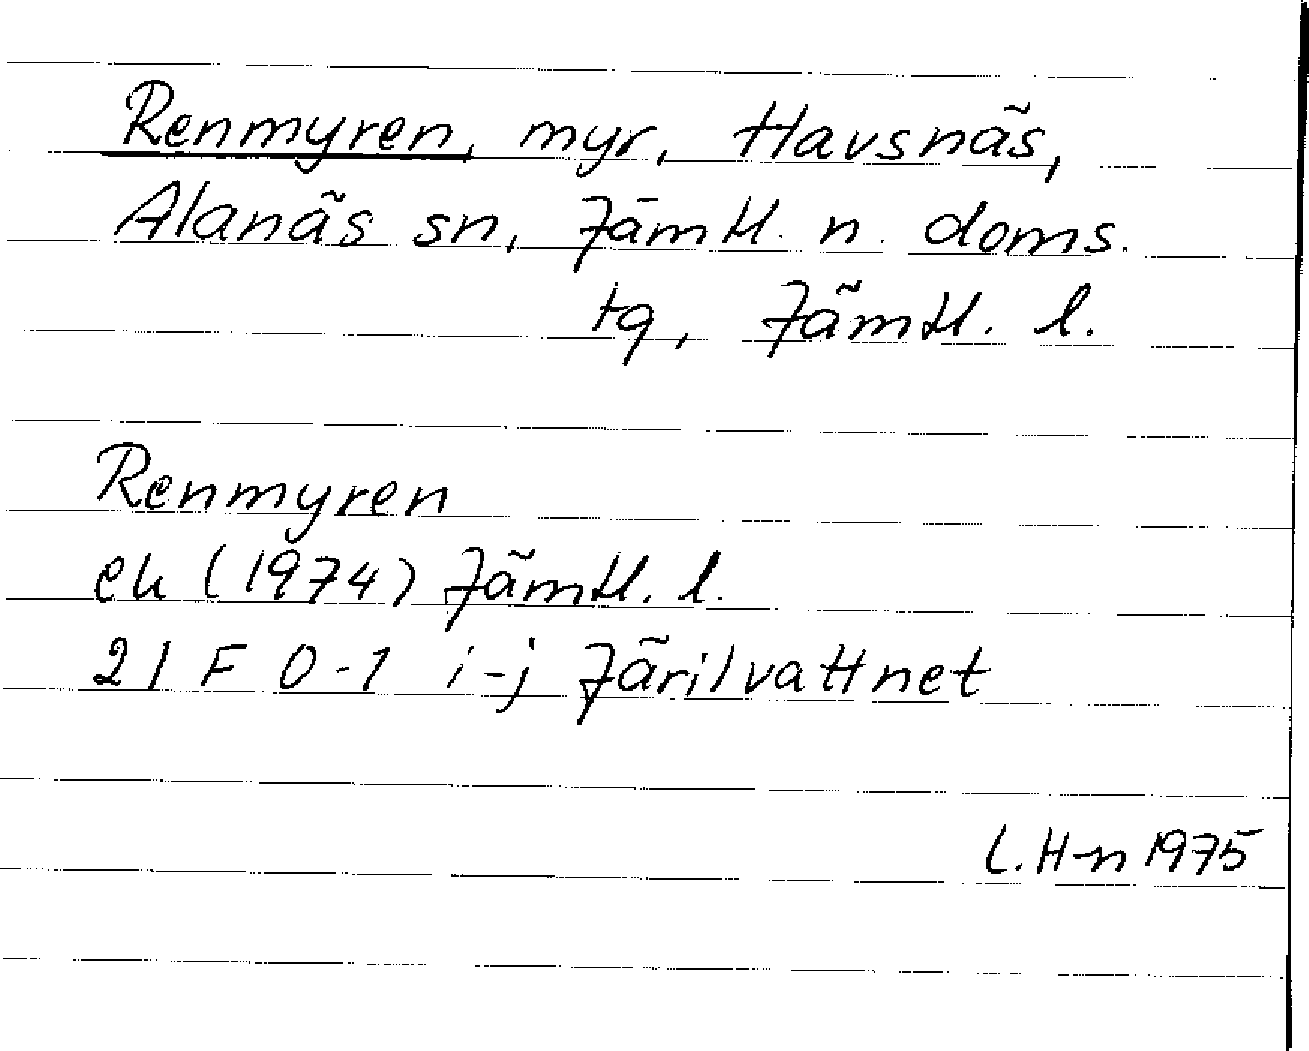 Renmyren, myr, Havsnäs,
Alanäs sn, Jämtl. n. doms.
tg, Jämtl. l.
Renmyren
ek (1974) Jämtl. l.
21 F 0-1 i-j Järilvattnet
L. H-n 1975